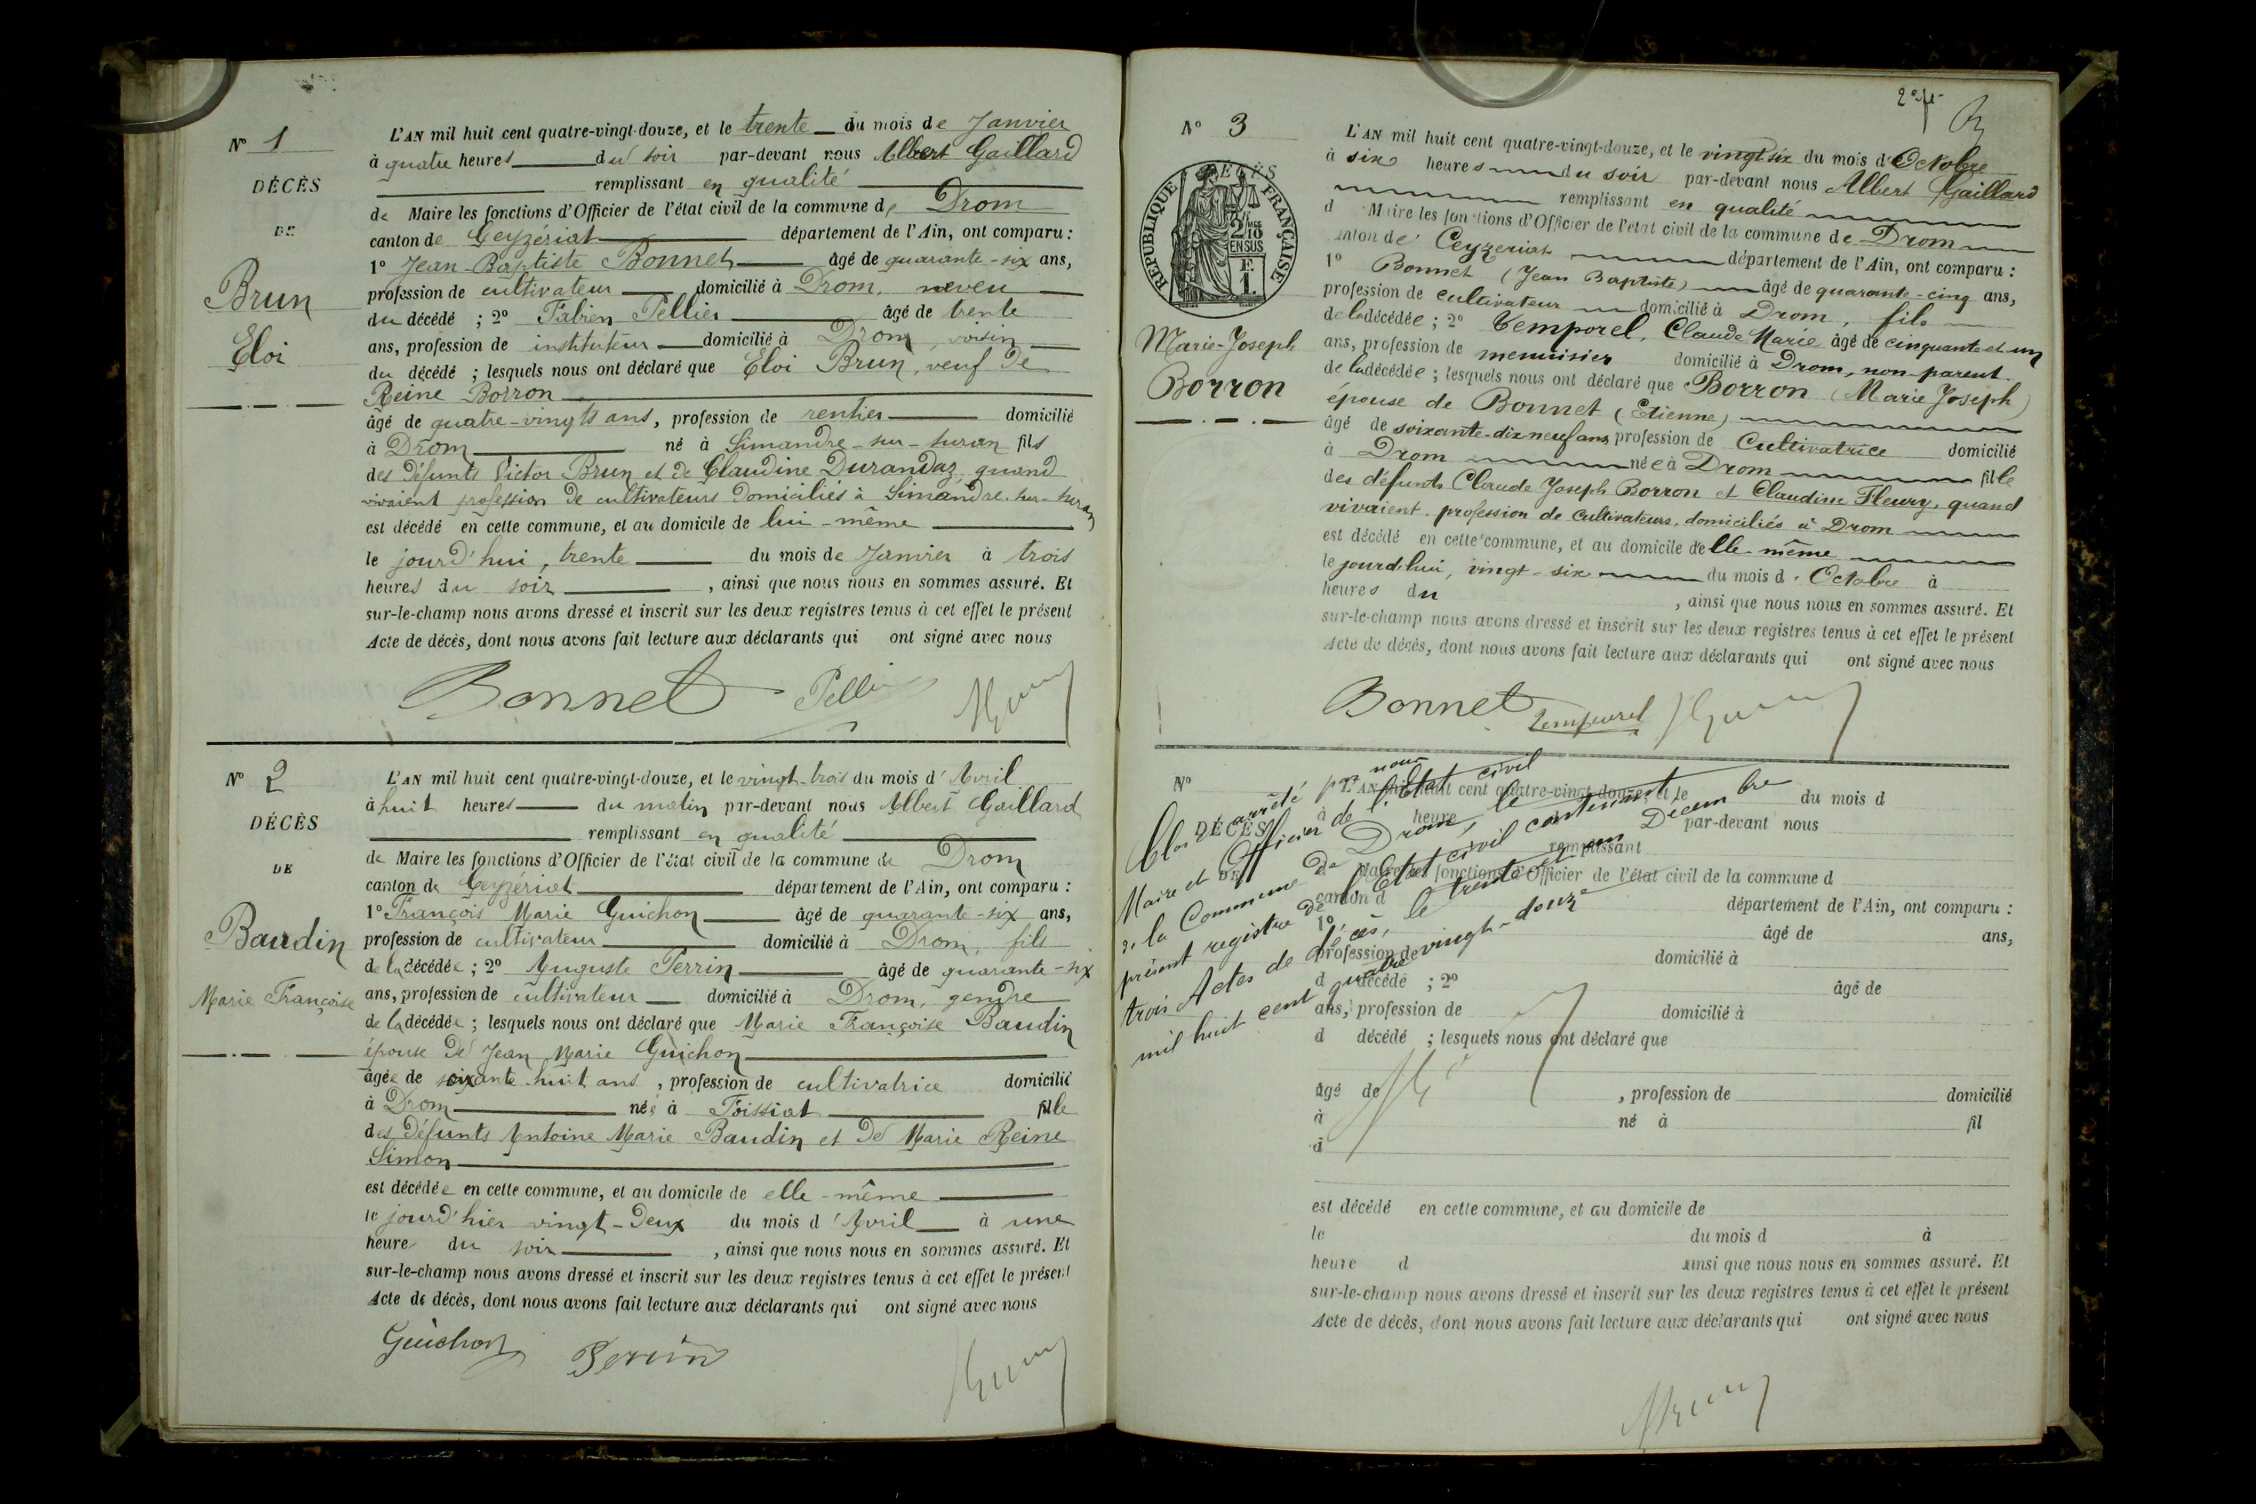 N° 1
DÉCÈS
DE
Brun
Eloi
L'AN mil huit cent quatre-vingt-douze, et le trente du mois de Janvier
à quatre heures du soir par-devant nous Albert Gaillard
remplissant en qualité
de Maire les fonctions d'Officier de l'état civil de la commune de Drom
canton de Ceyzériat département de l'Ain, ont comparu :
1° Jean-Baptiste Bonnet âgé de quarante-six ans,
profession de cultivateur domicilié à Drom, neveu
du décédé ; 2° Fabien Pellier âgé de trente
ans, profession de instituteur domicilié à Drom, voisin
du décédé ; lesquels nous ont déclaré que Eloi Brun, veuf de
Reine Borron
âgé de quatre-vingts ans, profession de rentier domicilié
à Drom né à Simandre-sur-Suran fils
des défunts Victor Brun et de Claudine Durandaz, quand
vivaient profession de cultivateurs domiciliés à Simandre-sur-Suran
est décédé en cette commune, et au domicile de lui-même
le jourd'hui, trente du mois de Janvier à trois
heures du soir, ainsi que nous nous en sommes assuré. Et
sur-le-champ nous avons dressé et inscrit sur les deux registres tenus à cet effet le présent
Acte de décès, dont nous avons fait lecture aux déclarants qui ont signé avec nous
Bonnet Pellier
N° 2
DÉCÈS
DE
Baudin
Marie Françoise
L'AN mil huit cent quatre-vingt-douze, et le vingt-trois du mois d'Avril
à huit heures du matin par-devant nous Albert Gaillard
remplissant en qualité
de Maire les fonctions d'Officier de l'état civil de la commune de Drom
canton de Ceyzériat département de l'Ain, ont comparu :
1° François Marie Guichon âgé de quarante-six ans,
profession de cultivateur domicilié à Drom, fils
de la décédée ; 2° Auguste Perrin âgé de quarante-six
ans, profession de cultivateur domicilié à Drom, gendre
de la décédée ; lesquels nous ont déclaré que Marie Françoise Baudin
épouse de Jean Marie Guichon
âgée de soixante-huit ans, profession de cultivatrice domicilié
à Drom née à Foissiat fille
des défunts Antoine Marie Baudin et de Marie Reine
Simon
est décédée en cette commune, et au domicile de elle-même
le jourd'hier vingt-deux du mois d'Avril à une
heure du soir, ainsi que nous nous en sommes assuré. Et
sur-le-champ nous avons dressé et inscrit sur les deux registres tenus à cet effet le présent
Acte de décès, dont nous avons fait lecture aux déclarants qui ont signé avec nous
Guichon Perrin
N° 3
DÉCÈS
RÉPUBLIQUE FRANÇAISE
2/10 EN SUS
F. 1.
Marie-Joseph
Borron
L'AN mil huit cent quatre-vingt-douze, et le vingt six du mois d'Octobre
à six heures du soir par-devant nous Albert Gaillard
remplissant en qualité
d Maire les fonctions d'Officier de l'état civil de la commune de Drom
canton de Ceyzeriat département de l'Ain, ont comparu :
1° Bonnet (Jean Baptiste) âgé de quarante-cinq ans,
profession de cultivateur domicilié à Drom, fils
de la décédée ; 2° Temporel, Claude Marie âgé de cinquante et un
ans, profession de menuisier domicilié à Drom, non parent
de la décédée ; lesquels nous ont déclaré que Borron (Marie Joseph)
épouse de Bonnet (Etienne)
âgé de soixante-dix neuf ans profession de Cultivatrice domicilié
à Drom née à Drom fille
des défunts Claude Joseph Borron et Claudine Fleury, quand
vivaient profession de Cultivateurs, domiciliés à Drom
est décédé en cette commune, et au domicile d'elle-même
le jourd'hui, vingt-six du mois d'Octobre à
heures du , ainsi que nous nous en sommes assuré. Et
sur-le-champ nous avons dressé et inscrit sur les deux registres tenus à cet effet le présent
Acte de décès, dont nous avons fait lecture aux déclarants qui ont signé avec nous
Bonnet Temporel
Clos et arrêté par nous
Maire et Officier de l'Etat civil
de la Commune de Drom, le
présent registre de l'Etat civil contenant
trois Actes de décès, le trente et un Décembre
mil huit cent quatre vingt-douze
N°
DÉCÈS
DE
L'AN mil huit cent quatre-vingt-douze, et le du mois d
à heure par-devant nous
remplissant
d Maire les fonctions d'Officier de l'état civil de la commune d
canton d département de l'Ain, ont comparu :
1° âgé de ans,
profession de domicilié à
d décédé ; 2° âgé de
ans, profession de domicilié à
d décédé ; lesquels nous ont déclaré que
âgé de , profession de domicilié
à né à fil
d
est décédé en cette commune, et au domicile de
le du mois d à
heure d ainsi que nous nous en sommes assuré. Et
sur-le-champ nous avons dressé et inscrit sur les deux registres tenus à cet effet le présent
Acte de décès, dont nous avons fait lecture aux déclarants qui ont signé avec nous